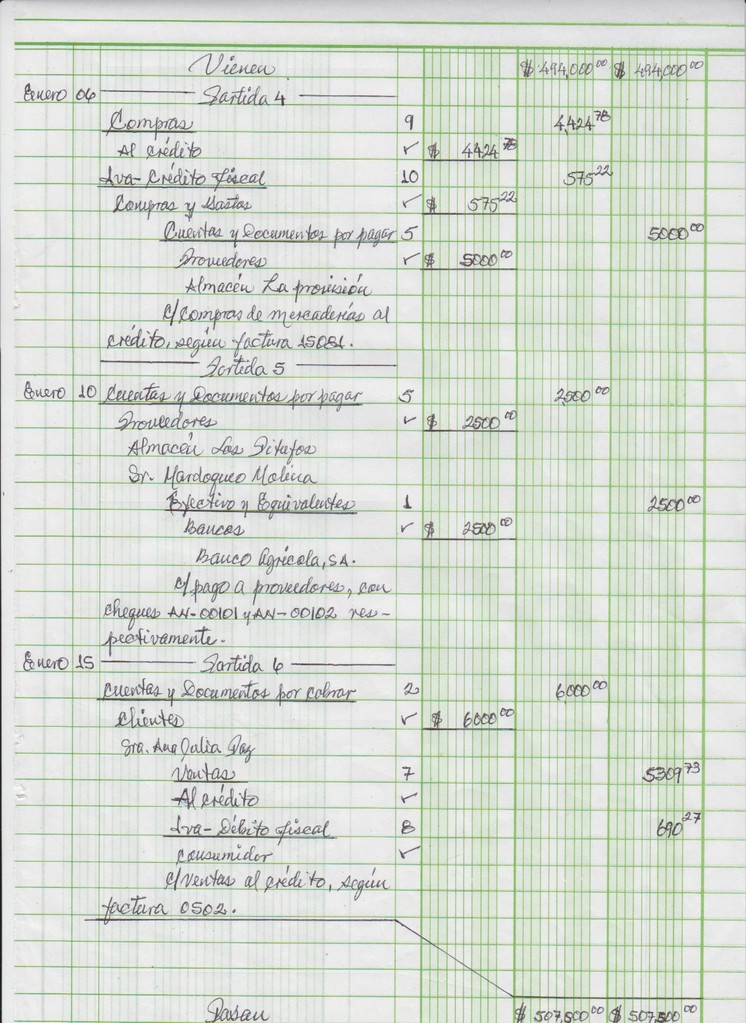 Vienen $ 494,000.00 $ 494,000.00
Enero 06 Partida 4
Compras 9 4,424.78
Al crédito ✓ $ 4424.78
Iva-Crédito fiscal 10 575.22
Compras y Gastos ✓ $ 575.22
Cuentas y Documentos por pagar 5 5000.00
Proveedores ✓ $ 5000.00
Almacén La provisión
C/Compras de mercaderías al
crédito, según factura 15081.
Partida 5
Enero 10 Cuentas y Documentos por pagar 5 2,500.00
Proveedores ✓ $ 2500.00
Almacén Los Pitufos
Sr. Mardoqueo Molina
Efectivo y Equivalentes 1 2500.00
Bancos ✓ $ 2500.00
Banco Agrícola, SA.
C/pago a proveedores, con
cheques AN-00101 y AN-00102 res-
pectivamente.
Enero 15 Partida 6
Cuentas y Documentos por cobrar 2 6,000.00
Clientes ✓ $ 6000.00
Sra. Ana Julia Paz
Ventas 7 5309.73
Al crédito ✓
Iva-Débito fiscal 8 690.27
Consumidor ✓
C/ventas al crédito, según
factura 0502.
Pasan $ 507,500.00 $ 507,500.00